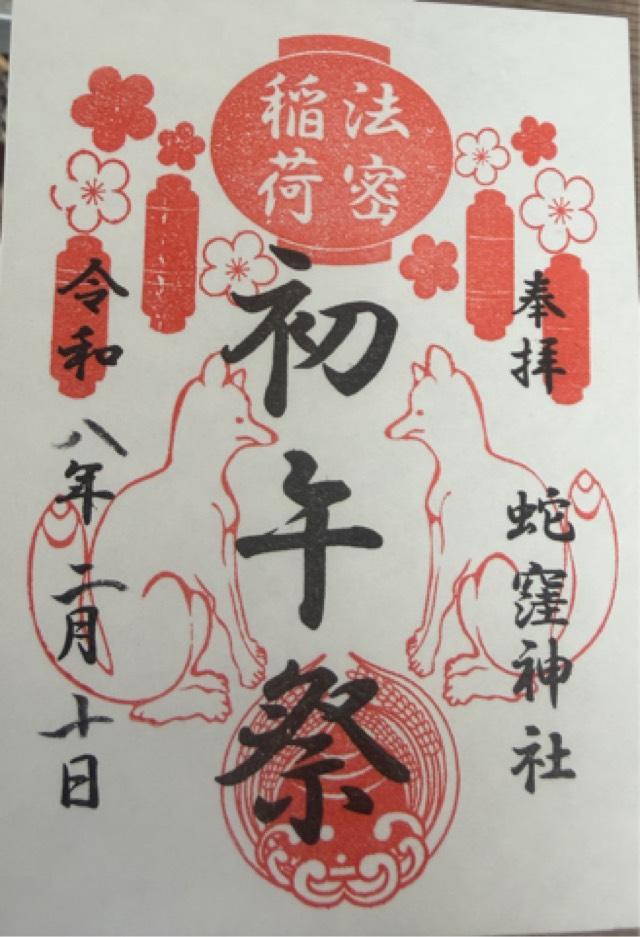 法密
稲荷
奉拝
蛇窪神社
初午祭
令和八年二月十日